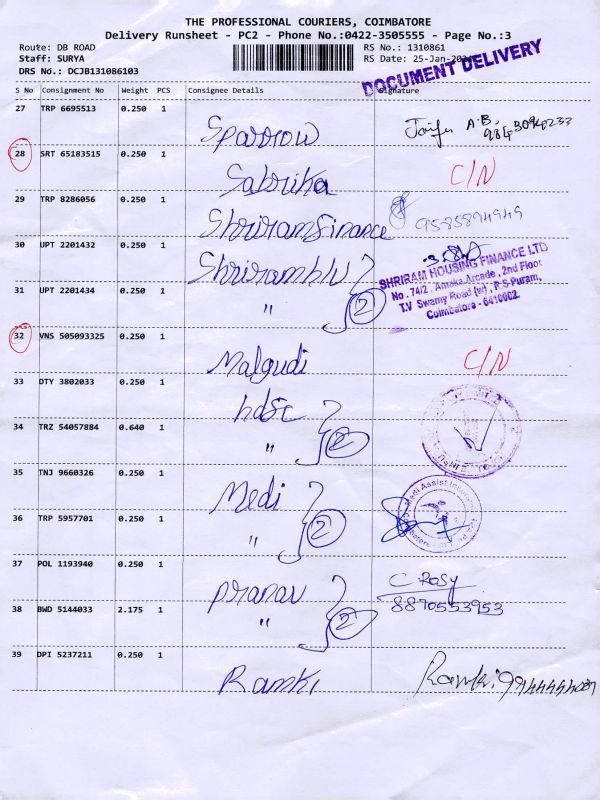 THE PROFESSIONAL COURIERS, COIMBATORE
Delivery Runsheet - PC2 - Phone No.:0422-3505555 - Page No.:3
Route: DB ROAD RS No.: 1310861
Staff: SURYA RS Date: 25-Jan-
DRS No.: DCJB131086103
DOCUMENT DELIVERY
S No Consignment No Weight PCS Consignee Details Signature
27 TRP 6695513 0.250 1 Sparrow A.B.
28 SRT 65183515 0.250 1 Sabrika C/N
29 TRP 8286056 0.250 1 Shriram finance 9585894949
30 UPT 2201432 0.250 1 Shriram
31 UPT 2201434 0.250 1 " 2
SHRIRAM HOUSING FINANCE LTD
No. 74/2, Amaka Arcade, 2nd Floor
T.V Swamy Road (w), R-S-Puram,
Coimbatore - 6410002
32 VNS 505093325 0.250 1 Malgudi C/N
33 DTY 3802033 0.250 1 hdfc
34 TRZ 54057884 0.640 1 " 2
35 TNJ 9660326 0.250 1 Medi
Medi Assist
36 TRP 5957701 0.250 1 " 2
37 POL 1193940 0.250 1 pranav C Rosy
8890553953
38 BWD 5144033 2.175 1 " 2
39 DPI 5237211 0.250 1 Ramki Ramki